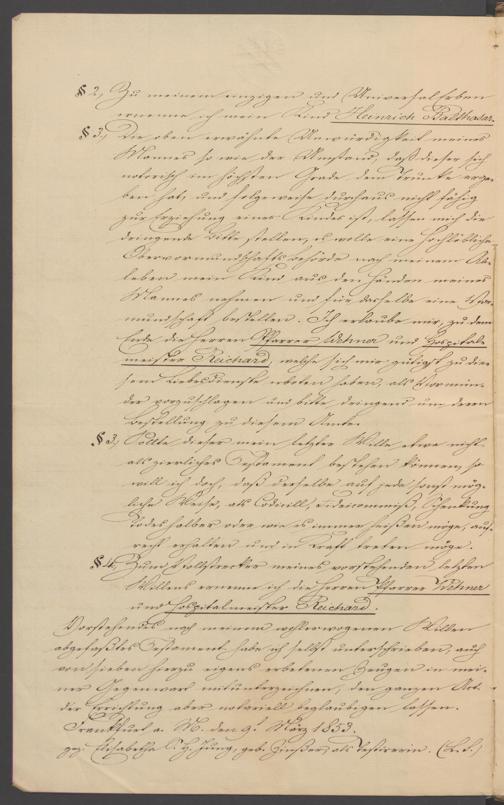 § 2, Zu meinem einzigen und Universalerben
ernenne ich mein Kind Heinrich Balthasar.
§ 3, Die oben erwähnte Unwürdigkeit meines
Mannes so wie der Umstand, daß dieser sich
notorisch im höchsten Grade dem Trunke erge-
ben hat, und folgeweise durchaus nicht fähig
zur Erziehung eines Kindes ist, lassen mich die
dringende Bitte stellen, es wolle eine hochlöbliche
Obervormundschaftsbehörde nach meinem Ab-
leben mein Kind aus den Händen meines
Mannes nehmen und für dasselbe eine Vor-
mundschaft bestellen. Ich erlaube mir, zu dem
Ende die Herren Pfarrer und Hospital-
meister Reichard, welche sich mir gütigst zu die-
sem Liebesdienste erboten haben, als Vormün-
der vorzuschlagen und bitte dringend um deren
Bestellung zu diesem Amte.
§ 3, Sollte dieser mein letzter Wille etwa nicht
als zierliches Testament bestehen können, so
will ich doch, daß derselbe auf jede sonst mög-
liche Weise, als Codicill, Fideicommiß, Schenkung
Todes halber oder wie es immer heißen möge, auf-
recht erhalten und in Kraft treten möge.
§ 4, Zu Vollstrecker meines vorstehenden letzten
Willens ernenne ich die Herren Pfarrer
und Hospitalmeister Reichard.
Vorstehendes nach meinem wohlerwogenen Willen
abgefaßtes Testament habe ich selbst unterschrieben, auch
von sieben hierzu eigens erbetenen Zeugen in mei-
ner Gegenwart mitunterzeichnen, den ganzen Act
der Errichtung aber notariell beglaubigen lassen.
Frankfurt a. M. den 9. März 1853.
gez. Elisabetha S. H. Jung, geb. als Testirerin. (L. S.)